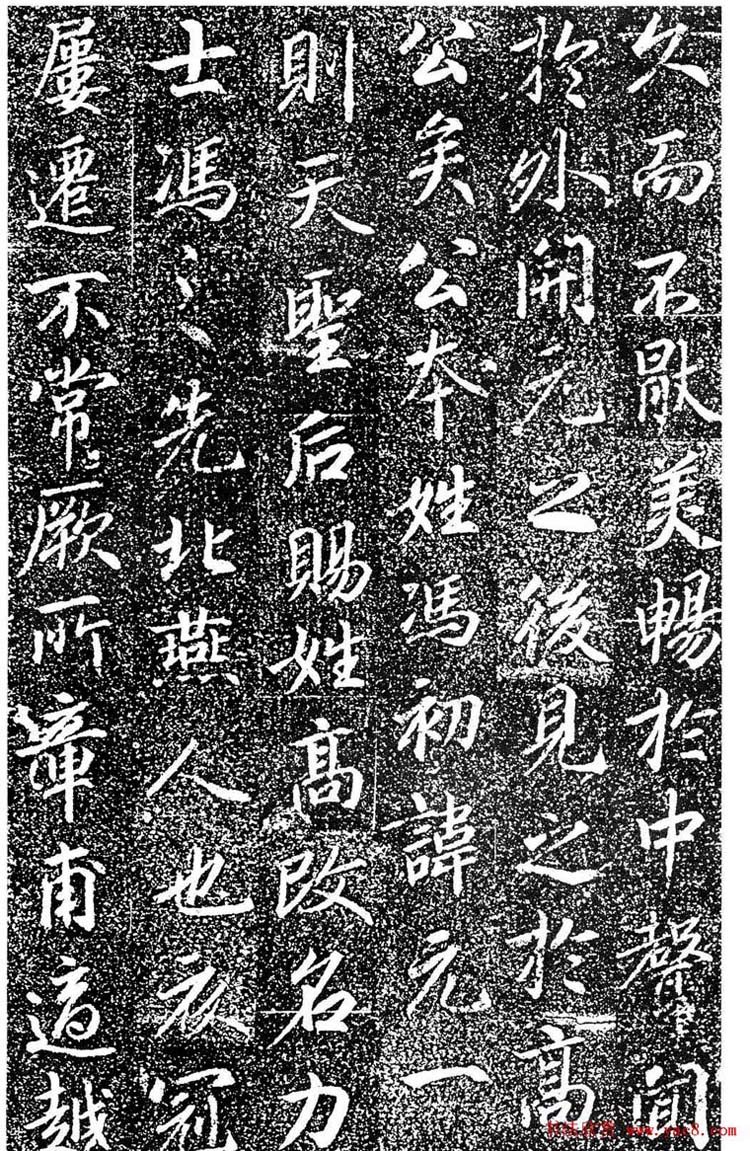 久而不猒美暢於中聲聞
於外開元之後見之於高
公矣公本姓馮初諱元一
則天聖后賜姓高改名力
士馮之先北燕人也衣冠
屢遷不常厥所章甫適越
www.yac8.com